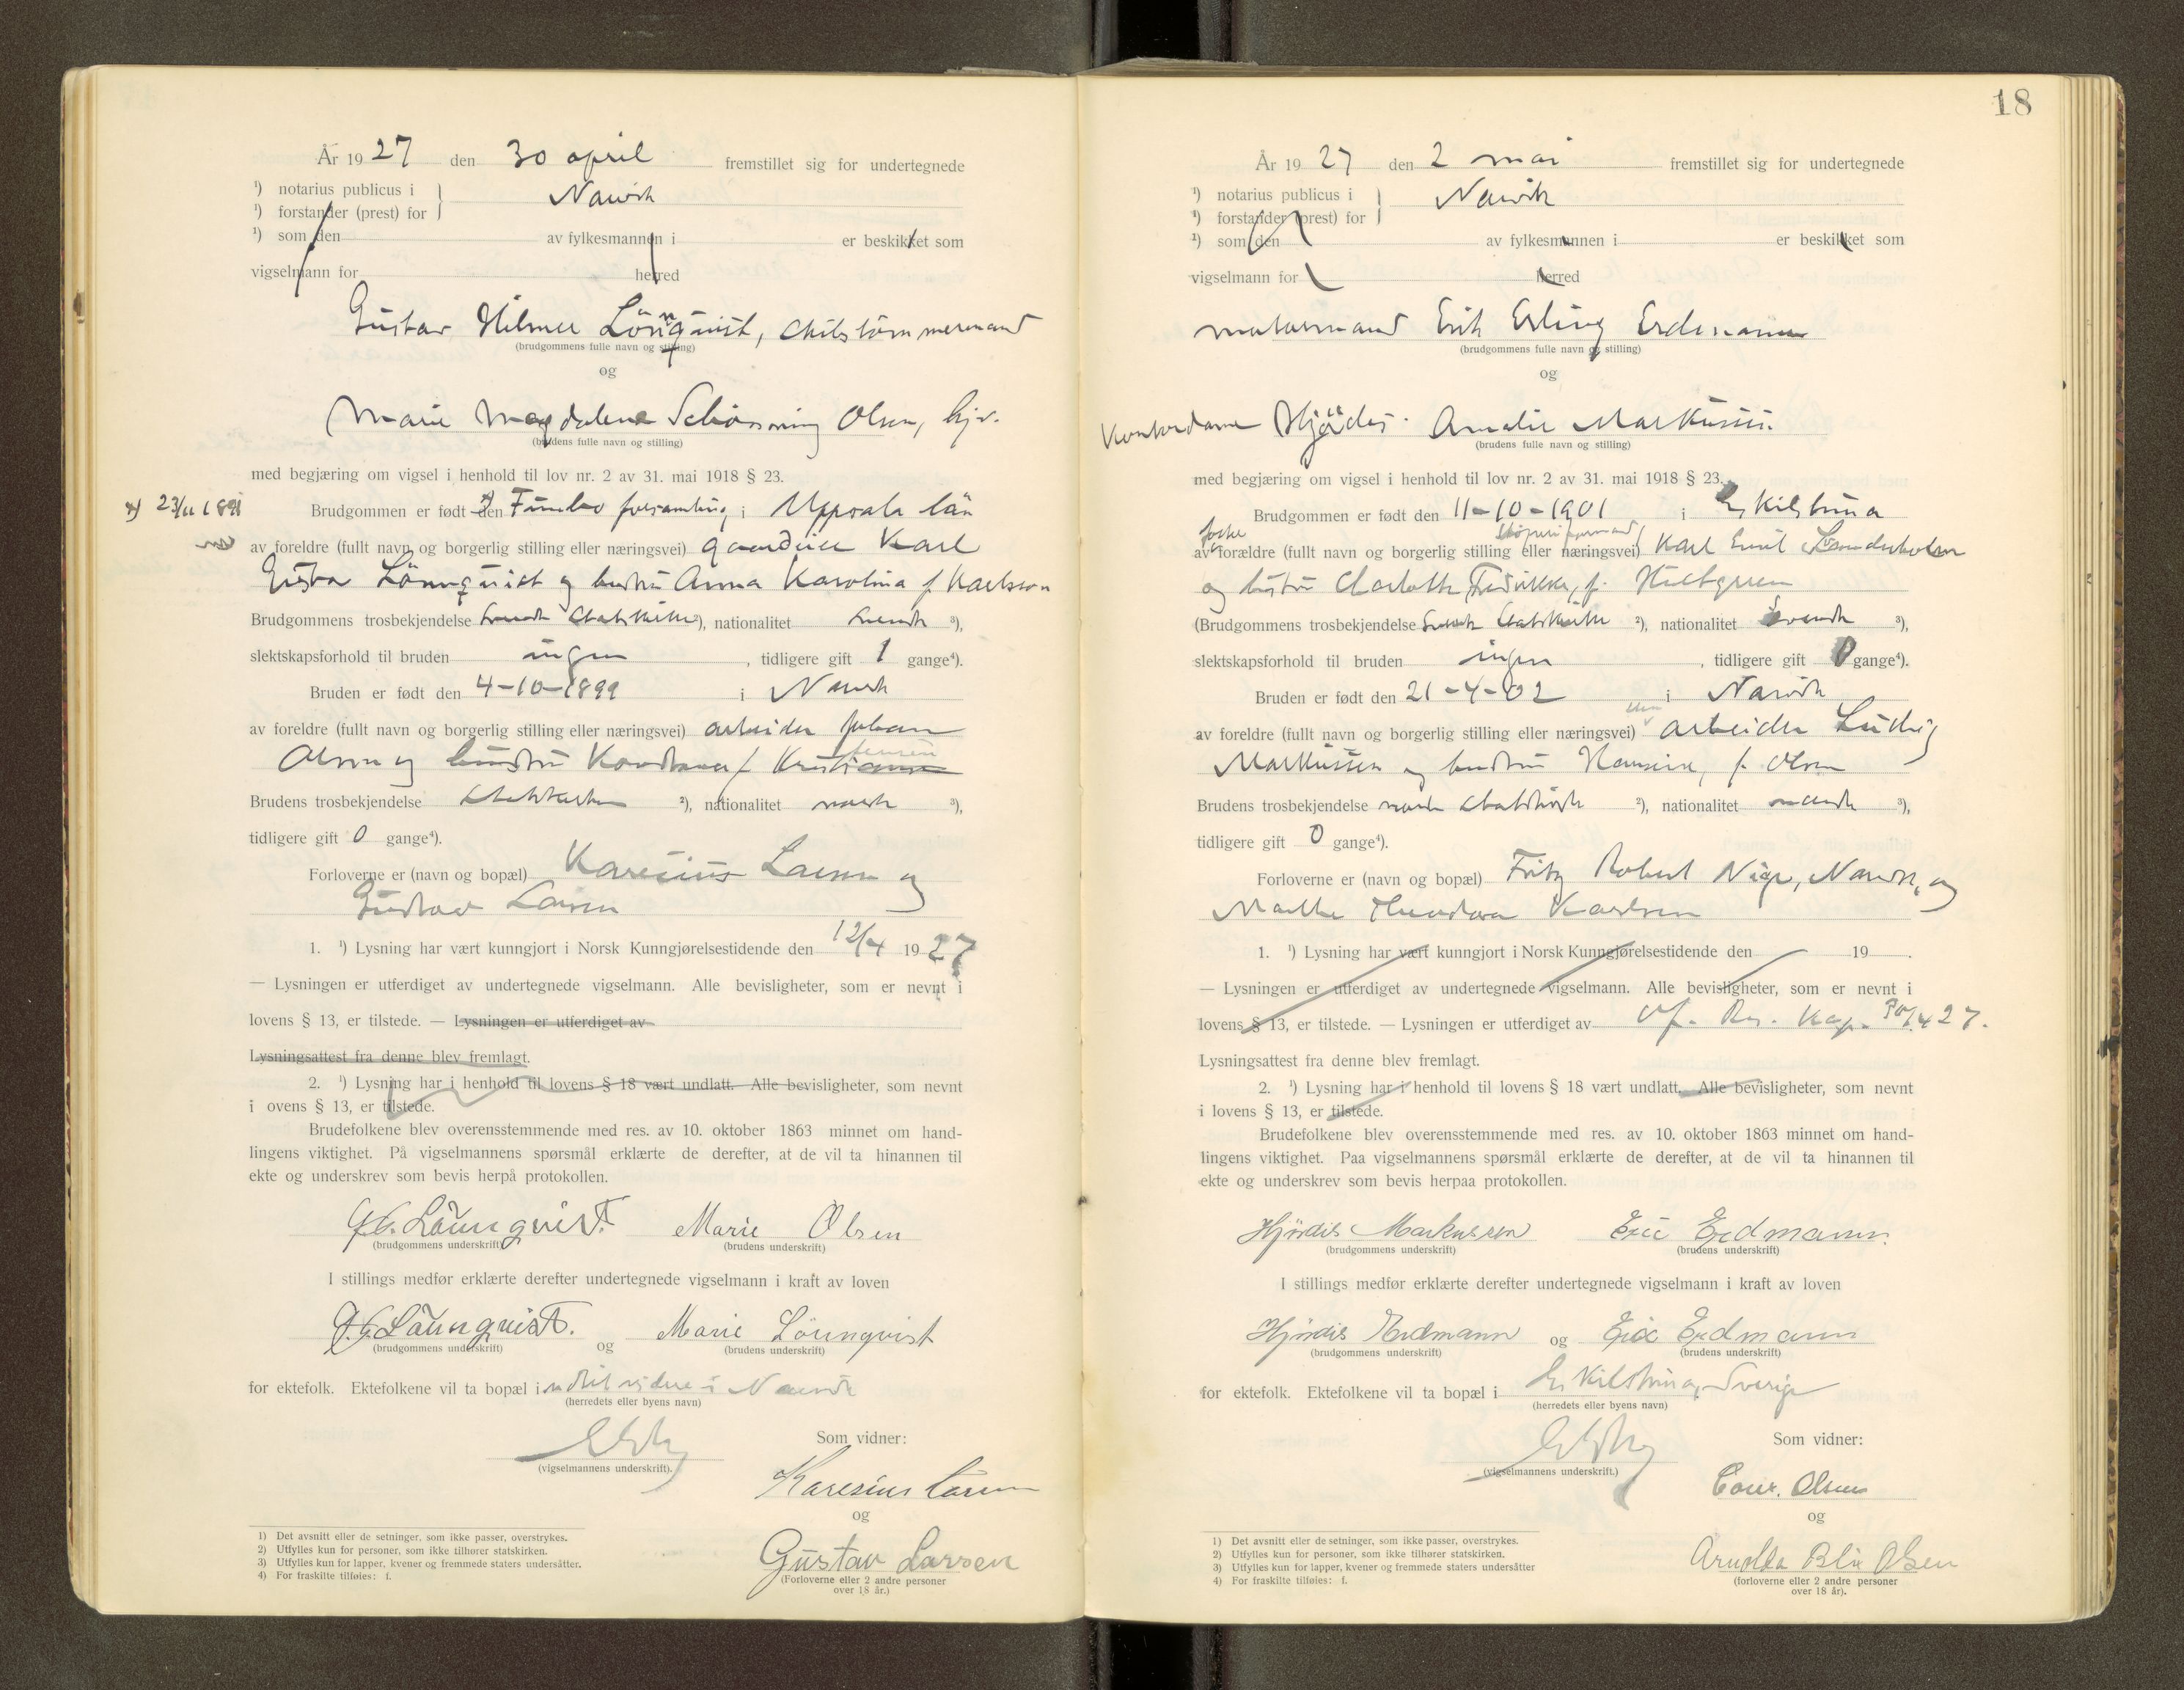 År 1927 den 30 april fremstillet sig for undertegnede
¹) notarius publicus i
¹) forstander (prest) for
Narvik
¹) som den av fylkesmannen i er beskikket som
vigselmann for herred
Gustav Hilmer Lönnquist,
(brudgommens fulle navn og stilling)
og
Marie Magdalene Schönning Olsen, hjv.
(brudens fulle navn og stilling)
med begjæring om vigsel i henhold til lov nr. 2 av 31. mai 1918 § 23.
x) 23/11 1891
Brudgommen er født den Funbo forsamling i Uppsala län
av foreldre (fullt navn og borgerlig stilling eller næringsvei) gaardeier Karl
Gustav Lönnquist og hustru Anna Karolina f. Karlsson
Brudgommens trosbekjendelse svensk statskirke ²), nationalitet svensk ³),
slektskapsforhold til bruden ingen, tidligere gift 1 gange⁴).
Bruden er født den 4-10-1899 i Narvik
av foreldre (fullt navn og borgerlig stilling eller næringsvei) arbeider Johan
Olsen og hustru f. Kristiansen Jensen
Brudens trosbekjendelse statskirken ²), nationalitet norsk ³),
tidligere gift 0 gange⁴).
Forloverne er (navn og bopæl) Karesius Larsen og
Gustav Larsen
1. ¹) Lysning har vært kunngjort i Norsk Kunngjørelsestidende den 12/4 1927
— Lysningen er utferdiget av undertegnede vigselmann. Alle bevisligheter, som er nevnt i
lovens § 13, er tilstede. — Lysningen er utferdiget av
Lysningsattest fra denne blev fremlagt.
2. ¹) Lysning har i henhold til lovens § 18 vært undlatt. Alle bevisligheter, som nevnt
i ovens § 13, er tilstede.
Brudefolkene blev overensstemmende med res. av 10. oktober 1863 minnet om hand-
lingens viktighet. På vigselmannens spørsmål erklærte de derefter, at de vil ta hinannen til
ekte og underskrev som bevis herpå protokollen.
Lönnqvist. Marie Olsen
(brudgommens underskrift) (brudens underskrift)
I stillings medfør erklærte derefter undertegnede vigselmann i kraft av loven
Lönnqvist. og Marie Lönnqvist
(brudgommens underskrift) (brudens underskrift)
for ektefolk. Ektefolkene vil ta bopæl i indtil videre i Narvik
(herredets eller byens navn)
Som vidner:
(vigselmannens underskrift).
Karesius Larsen
og
Gustav Larsen
(Forloverne eller 2 andre personer
over 18 år.)
1) Det avsnitt eller de setninger, som ikke passer, overstrykes.
2) Utfylles kun for personer, som ikke tilhører statskirken.
3) Utfylles kun for lapper, kvener og fremmede staters undersåtter.
4) For fraskilte tilføies: f.
18
År 1927 den 2 mai fremstillet sig for undertegnede
¹) notarius publicus i
¹) forstander (prest) for
Narvik
¹) som den av fylkesmannen i er beskikket som
vigselmann for herred
Erik Erling Erdmann
(brudgommens fulle navn og stilling)
og
Kontordame Hjørdis Amalie Markussen.
(brudens fulle navn og stilling)
med begjæring om vigsel i henhold til lov nr. 2 av 31. mai 1918 § 23.
Brudgommen er født den 11-10-1901 i Eskilstuna
av forældre (fullt navn og borgerlig stilling eller næringsvei) Karl Emil
og hustru Charlotte Fredrikke, f. Hultgren
(Brudgommens trosbekjendelse svensk statskirke ²), nationalitet svensk ³),
slektskapsforhold til bruden ingen, tidligere gift 0 gange⁴).
Bruden er født den 21-4-02 i Narvik
av foreldre (fullt navn og borgerlig stilling eller næringsvei) arbeider Ludvig
Markussen og hustru Hansine, f. Olsen
Brudens trosbekjendelse norsk statskirke ²), nationalitet norsk ³),
tidligere gift 0 gange⁴).
Forloverne er (navn og bopæl) Fritz Robert Narvik, og
Marthe Theodora Karlsen
1. ¹) Lysning har vært kunngjort i Norsk Kunngjørelsestidende den 19 .
— Lysningen er utferdiget av undertegnede vigselmann. Alle bevisligheter, som er nevnt i
lovens § 13, er tilstede. — Lysningen er utferdiget av Res. Kap. 30/4 27.
Lysningsattest fra denne blev fremlagt.
2. ¹) Lysning har i henhold til lovens § 18 vært undlatt. Alle bevisligheter, som nevnt
i lovens § 13, er tilstede.
Brudefolkene blev overensstemmende med res. av 10. oktober 1863 minnet om hand-
lingens viktighet. Paa vigselmannens spørsmål erklærte de derefter, at de vil ta hinannen til
ekte og underskrev som bevis herpaa protokollen.
Hjørdis Markussen Eric Erdmann.
(brudgommens underskrift) (brudens underskrift)
I stillings medfør erklærte derefter undertegnede vigselmann i kraft av loven
Hjørdis Erdmann og Eric Erdmann
(brudgommens underskrift) (brudens underskrift)
for ektefolk. Ektefolkene vil ta bopæl i Eskilstuna, Sverige
(herredets eller byens navn)
Som vidner:
(vigselmannens underskrift.)
Conr. Olsen
og
Arnolda Blix Olsen
(forloverne eller 2 andre personer
over 18 år).
1) Det avsnitt eller de setninger, som ikke passer, overstrykes.
2) Utfylles kun for personer, som ikke tilhører statskirken.
3) Utfylles kun for lapper, kvener og fremmede staters undersåtter
4) For fraskilte tilføies: f.